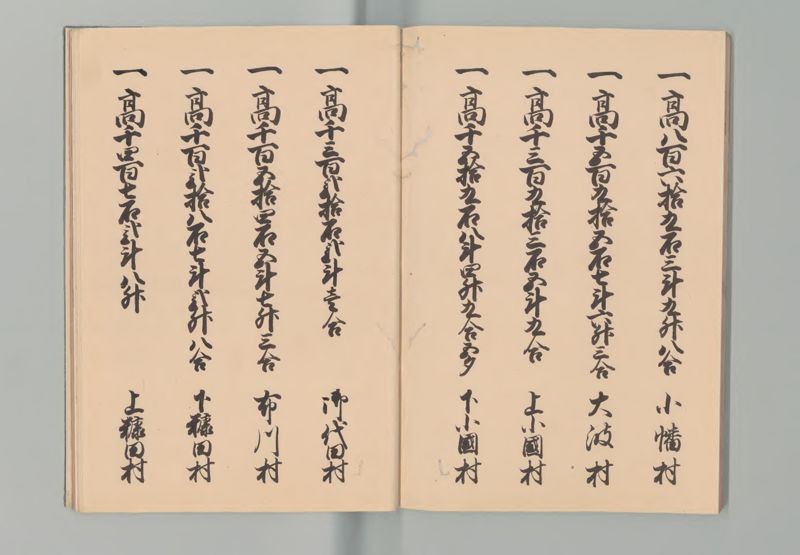 一高八百六拾九石三斗九升八合 小幡村
一高千五百九拾五石七斗六升三合 大波村
一高千三百九拾三石五斗九合 上小國村
一高千五拾九石八斗四升九合五夕 下小國村
一高千三百弐拾石弐斗壱合 御代田村
一高千百五拾四石五斗七升三合 布川村
一高千百弐拾八石七斗弐升八合 下糠田村
一高千四百七石弐斗八升 上糠田村